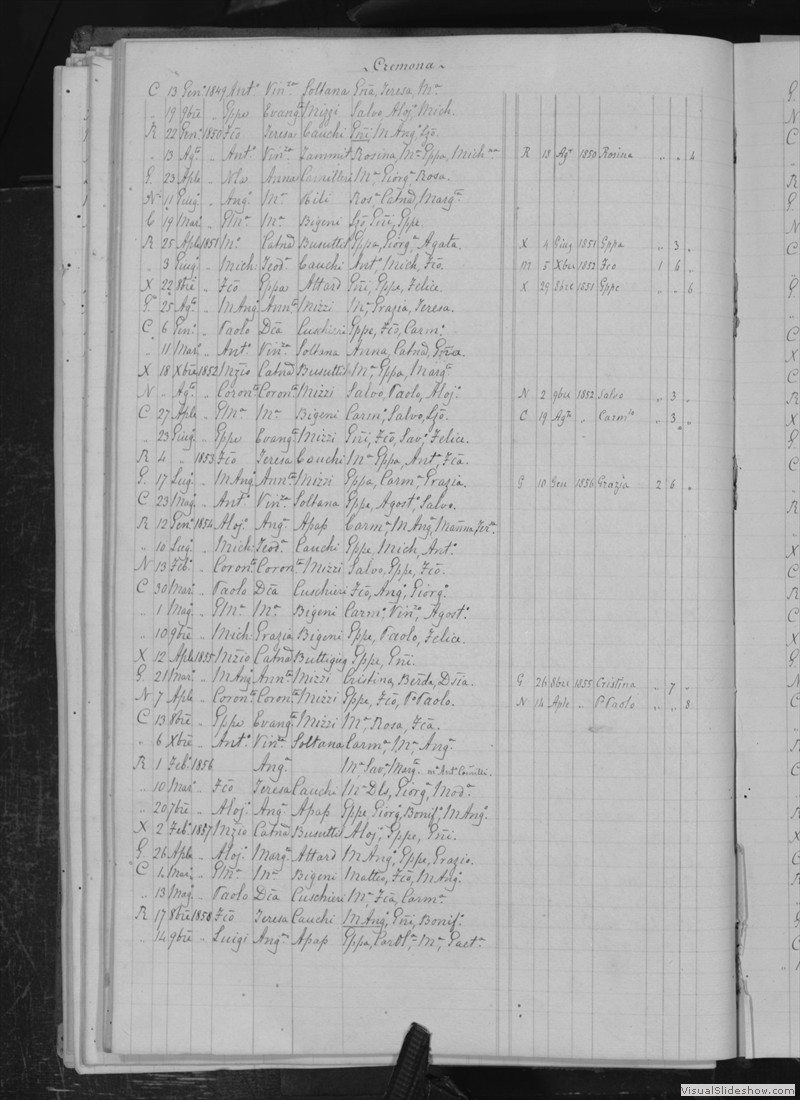 Cremona
C 13 Gen: 1849 Ant: Vin:za Soltana Gñi, Teresa, M:a
„ 19 9bre „ Gppe Evang:ta Mizzi Salvo, Aloj: Mich.
R 22 Gen: 1850 Fco Teresa Cauchi Gñi, M Ang: Gjo.
„ 13 Ag: „ Ant: Vin:za Zammit Rosina, M:a Gppa, Mich:na R 13 Ag: 1850 Rosina „ „ 4
G. 23 Aple „ Nla Anna Camilleri M: Giorg: Rosa.
N 11 Giug: „ Ang: M:a Ros: Catña, Marg:ta
C 19 Mar: „ Gm: M:a Bigeni Gjo, Gñi, Gppe.
R 25 Aple 1851 M: Catña Busuttil Gppa, Giorg: Agata. X 4 Giug 1851 Gppa „ 3 „
„ 3 Giug: „ Mich: Teod: Cauchi Ant: Mich, Fco. M 5 Xbre 1852 Fco 1 6 „
X 22 8bre „ Fco Gppa Attard Gñi, Gppe, Felice. X 29 8bre 1851 Gppe „ „ 6
G. 25 Ag: „ M Ang: Ann:ta Mizzi M:a Grazia, Teresa.
C 6 Gen: „ Paolo Dca Cuschieri Gppe, Fco, Carm:
„ 11 Mar: „ Ant: Vin:za Soltana Anna, Catña,
X 18 Xbre 1852 Nzio Catña Busuttil M:a Gppa, Marg:ta
N „ Ag: „ Coron:to Coron:ta Mizzi Salvo, Paolo, Aloj: N 2 9bre 1852 Salvo „ 3 „
C 27 Aple „ Gm: M:a Bigeni Carm: Salvo, Gjo. C 19 Ag: „ Carm:lo „ 3 „
„ 23 Giug: „ Gppe Evang:ta Mizzi Gñi, Fco, Sav: Felice.
R 4 „ 1853 Fco Teresa Cauchi M:a Gppa, Ant: Fca.
G. 17 Lug: „ M Ang: Ann:ta Mizzi Gppa, Carm: Grazia. G 10 Gen 1856 Grazia 2 6 „
C 23 Mag: „ Ant: Vin:za Soltana Gppe, Agost: Salvo.
R 12 Gen: 1854 Aloj: Ang: Apap Carm: M Ang:
„ 10 Lug: „ Mich: Teod: Cauchi Gppe, Mich, Ant:
N 13 Feb: „ Coron:to Coron:ta Mizzi Salvo, Gppe, Fco.
C 30 Mar: „ Paolo Dca Cuschieri Fco, Ang: Giorg:
„ 1 Mag: „ Gm: M:a Bigeni Carm: Vin: Agost:
„ 10 9bre „ Mich: Grazia Bigeni Gppe, Paolo, Felice.
X 12 Aple 1855 Nzio Catña Buttigieg Gppe, Gñi.
G. 21 Mar: „ M Ang: Ann:ta Mizzi Cristina, Berda, G 26 8bre 1855 Cristina „ 7 „
N 7 Aple „ Coron:to Coron:ta Mizzi Gppe, Fco, P. Paolo. N 14 Aple „ P. Paolo „ „ 8
C 13 8bre „ Gppe Evang:ta Mizzi M:a Rosa, Fca.
„ 6 Xbre „ Ant: Vin:za Soltana Carm: M:a Ang:
R 1 Feb: 1856 Ang: M: Sav: Marg:
„ 10 Mar: „ Fco Teresa Cauchi M:a Dls, Giorg: Mod:
„ 20 7bre „ Aloj: Ang: Apap Gppe, Giorg: Bonif: M Ang:
X 2 Feb: 1857 Nzio Catña Busuttil Aloj: Gppe, Gñi.
G. 26 Aple „ Aloj: Marg:ta Attard M Ang: Gppe, Grazio.
C 4 Mar: „ Gm: M:a Bigeni Matteo, Fco, M Ang:
„ 13 Mag: „ Paolo Dca Cuschieri M:a Fca, Carm:
R 17 8bre 1858 Fco Teresa Cauchi M Ang: Gñi, Bonif:
„ 14 9bre „ Luigi Ang: Apap Gppa, M:a Gaet:
VisualSlideshow.com